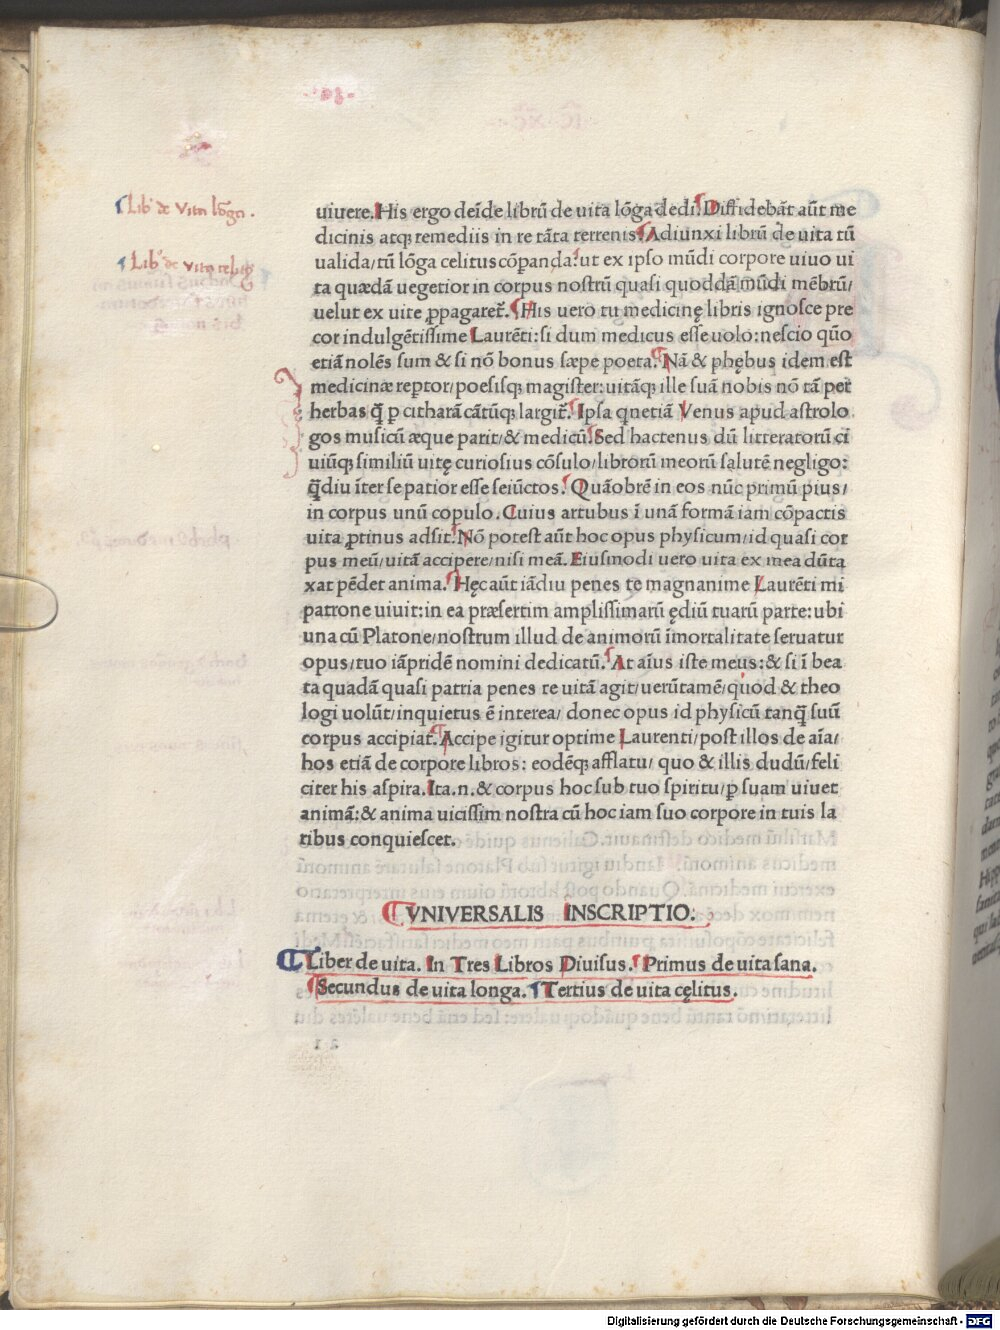 Lib' de vita lo͞ga.
Lib' de vita
uiuere. His ergo deı̄de librū de uita lōga dedi. Diffidebāt aūt me
dicinis atq; remediis in re tāta terrenis. Adiunxi librū de uita tū
ualida/tū lōga celitus cōpanda: ut ex ipso mūdi corpore uiuo ui
ta quædā uegetior in corpus nostrū quasi quoddā mūdi mēbrū/
uelut ex uite ꝓpagaret̄. His uero tu medicinę libris ignosce pre
cor indulgētissime Laurēti: si dum medicus esse uolo: nescio quō
etiā nolēs sum & si nō bonus sæpe poeta. Nā & phębus idem est
medicinæ reptor/poesisq; magister: uitāq; ille suā nobis nō tā per
herbas q̄̄ p citharā cātūq; largit̄. Ipsa qnetiā Venus apud astrolo
gos musicū æque parit/& medicū. Sed hactenus dū litteratorū ci
uiūq; similiū uitę curiosius cōsulo/librorū meorū salutē negligo:
q̄diu īter se patior esse seiūctos. Quāobrē in eos nūc primū pius/
in corpus unū copulo. Cuius artubus ī unā formā iam cōpactis
uita ꝓtinus adsit. Nō potest aūt hoc opus physicum/id quasi cor
pus meū/uitā accipere/nisi meā. Eiusmodi uero uita ex mea dūta
xat pēdet anima. Hęc aūt iādiu penes te magnanime Laurēti mi
patrone uiuit: in ea præsertim amplissimarū ędiū tuarū parte: ubi
una cū Platone/nostrum illud de animorū īmortalitate seruatur
opus/tuo iāpridē nomini dedicatū. At aīus iste meus: & si ī bea
ta quadā quasi patria penes te uitā agit/uerūtamē/quod & theo
logi uolūt/inquietus ē interea/ donec opus id physicū tanq̄ suū
corpus accipiat. Accipe igitur optime Laurenti/post illos de aīa/
hos etiā de corpore libros: eodēq; afflatu/ quo & illis dudū/feli
citer his aspira. Ita.n. & corpus hoc sub tuo spiritu/ꝑ suam uiuet
animā: & anima uicissim nostra cū hoc iam suo corpore in tuis la
ribus conquiescet.
VNIVERSALIS INSCRIPTIO:
Liber de uita. In Tres Libros Diuisus. Primus de uita sana.
Secundus de uita longa. Tertius de uita cęlitus.
Digitalisierung gefördert durch die Deutsche Forschungsgemeinschaft - DFG